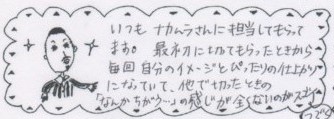 いつもナカムラさんに担当してもらって
ます。最初に切ってもらったときから
毎回自分のイメージとぴったりの仕上がり
になっていて、他で切ったときの
「なんかちがう〜」の感じが全くないのがスゴイ
つづく